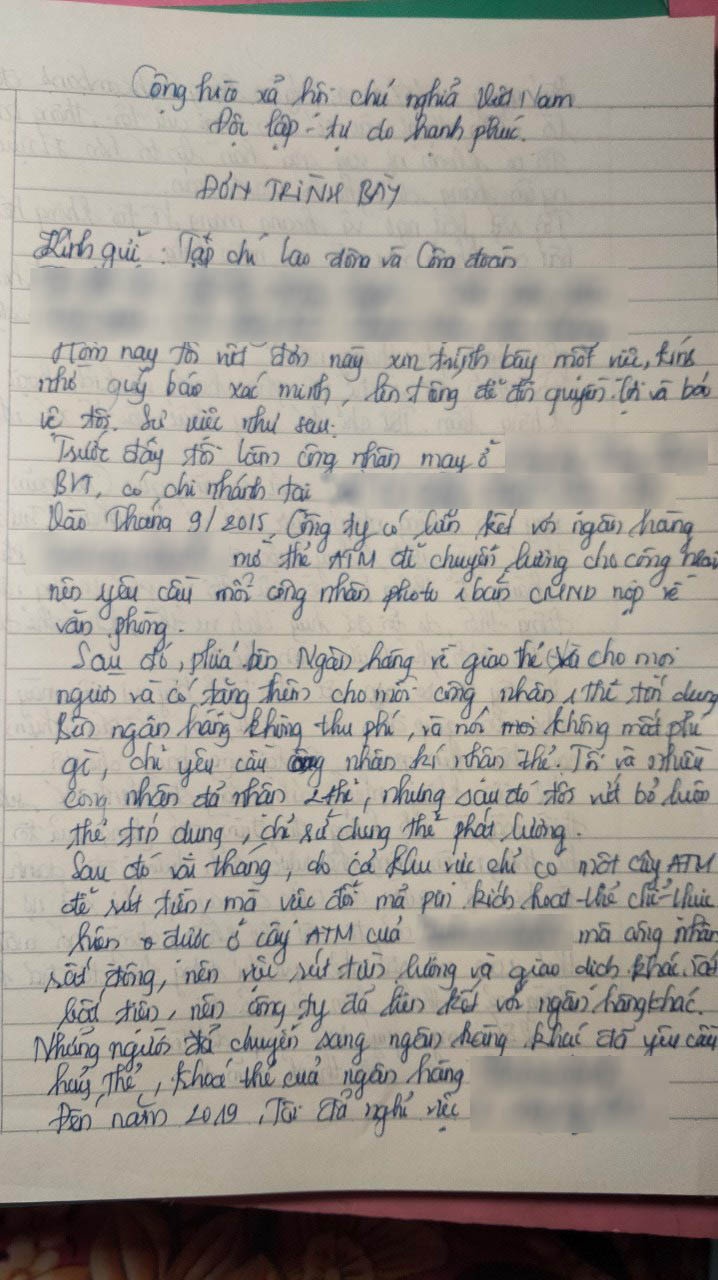 Cộng hòa xả hội chủ nghỉa Việt Nam
Độc lập - tự do hạnh phúc.
ĐƠN TRÌNH BÀY
Kính gửi : Tạp chí lao động và Công đoàn
Hôm nay tôi viết đơn này xin trình bày một việc, kính
nhờ quý báo xác minh, lên tiếng để đòi quyền lợi và bảo
vệ tôi. Sự việc như sau:
Trước đây tôi làm công nhân may ở
BVT, có chi nhánh tại
Vào Tháng 9/2015, Công ty có liên kết với ngân hàng
mở thẻ ATM để chuyển lương cho công nhân
nên yêu cầu mỗi công nhân photo 1 bản CMND nộp về
văn phòng.
Sau đó, phía bên Ngân hàng về giao thẻ và cho mọi
người và có tặng thêm cho mỗi công nhân 1 thẻ tín dụng
Bên ngân hàng không thu phí, và nói mọi không mất phí
gì, chỉ yêu cầu công nhân kí nhận thẻ. Tôi và nhiều
công nhân đả nhận 2 thẻ, nhưng sau đó tôi vứt bỏ luôn
thẻ tín dụng, chỉ sử dụng thẻ phát lương.
Sau đó vài tháng, do cả khu vực chỉ có một cây ATM
để rút tiền, mà việc đổi mả pin kích hoạt thẻ chỉ thực
hiện được ở cây ATM của mà công nhân
rất đông, nên việc rút tiền lương và giao dịch khác rất
bất tiện, nên công ty đả liên kết với ngân hàng khác.
Nhửng người đả chuyển sang ngân hàng khác đả yêu cầu
huỷ thẻ, khoá thẻ của ngân hàng
Đến năm 2019, Tôi đả nghỉ việc